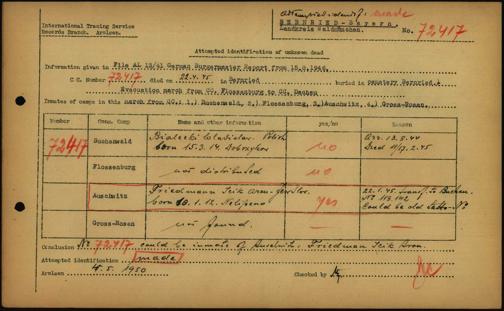 International Tracing Service
Records Branch, Arolsen.
Attempted identif.: made
BERNRIED-Bayern
Landkreis Waldmünchen.
No. 72417
Attempted identification of unknown dead
Information given in File AL 12/61 German Burgermaster Report from 12.2.1946.
C.C. Number 72417 died on 22.4.45 in Bernried buried in cemetery Bernried,
Evacuation march from CC. Flossenburg to CC. Dachau
Inmates of camps in this march from CC.: 1.) Buchenwald, 2.) Flossenburg, 3.) Auschwitz, 4.) Gross-Rosen.
Number Conc. Camp Name and other information yes/no Remarks
72417 Buchenwald Bialecki Wladislav. Polish
born 15.3.14. no Arr. 13.8.44
Died 2.45
Flossenburg not distributed no
Auschwitz Friedmann Izik Aron
born 1.12. yes 22.1.45. transf. to Buchen.
No
Could be old No
Gross-Rosen not found.
Conclusion No 72417 could be inmate of Auschwitz. Friedman Izik Aron.
Attempted identification made
Arolsen 4.5.1950 Checked by